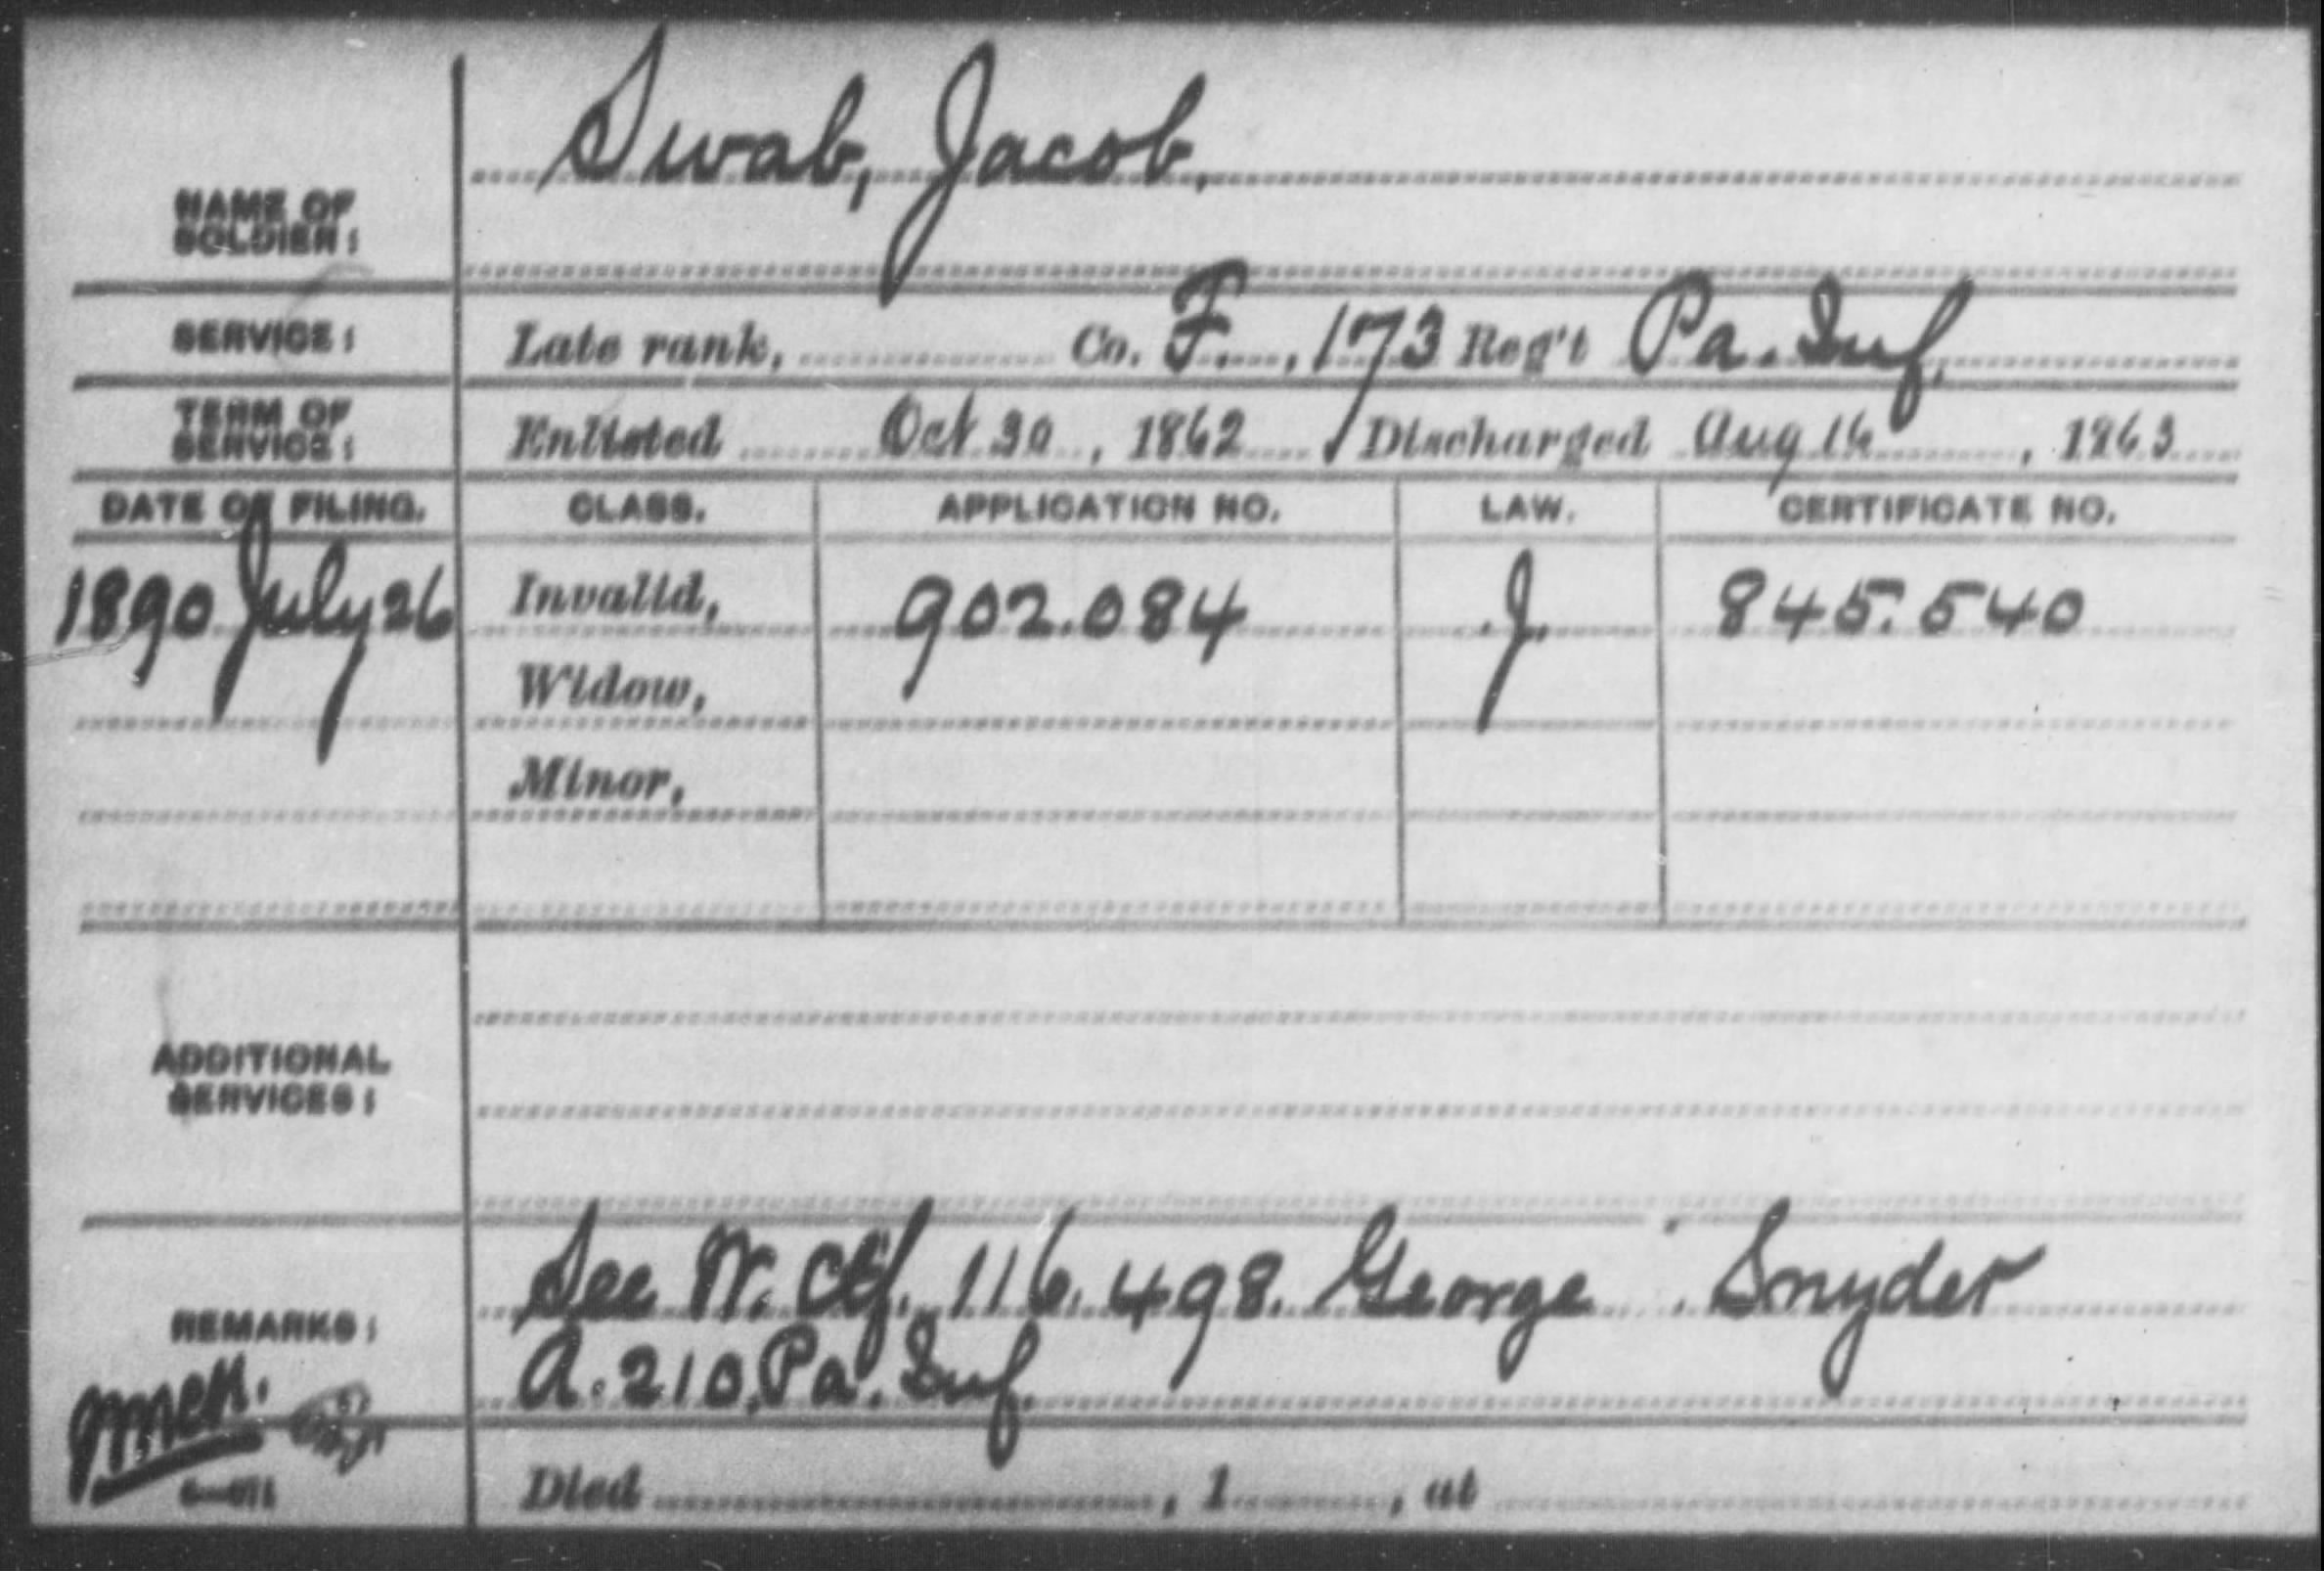 Swab, Jacob,
NAME OF
SOLDIER:
SERVICE: Late rank, Co. F., 173 Reg't Pa. Inf.
TERM OF
SERVICE: Enlisted Oct 30, 1862 Discharged Aug 16, 1863
DATE OF FILING. CLASS. APPLICATION NO. LAW. CERTIFICATE NO.
1890 July 26 Invalid, 902.084 J. 845.540
Widow,
Minor,
ADDITIONAL
SERVICES:
See W. Ctf. 116.498. George Snyder
REMARKS:
A. 210, Pa. Inf.
Died , 1 , at